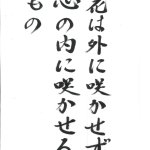 花は外に咲かせず
心の内に咲かせる
もの